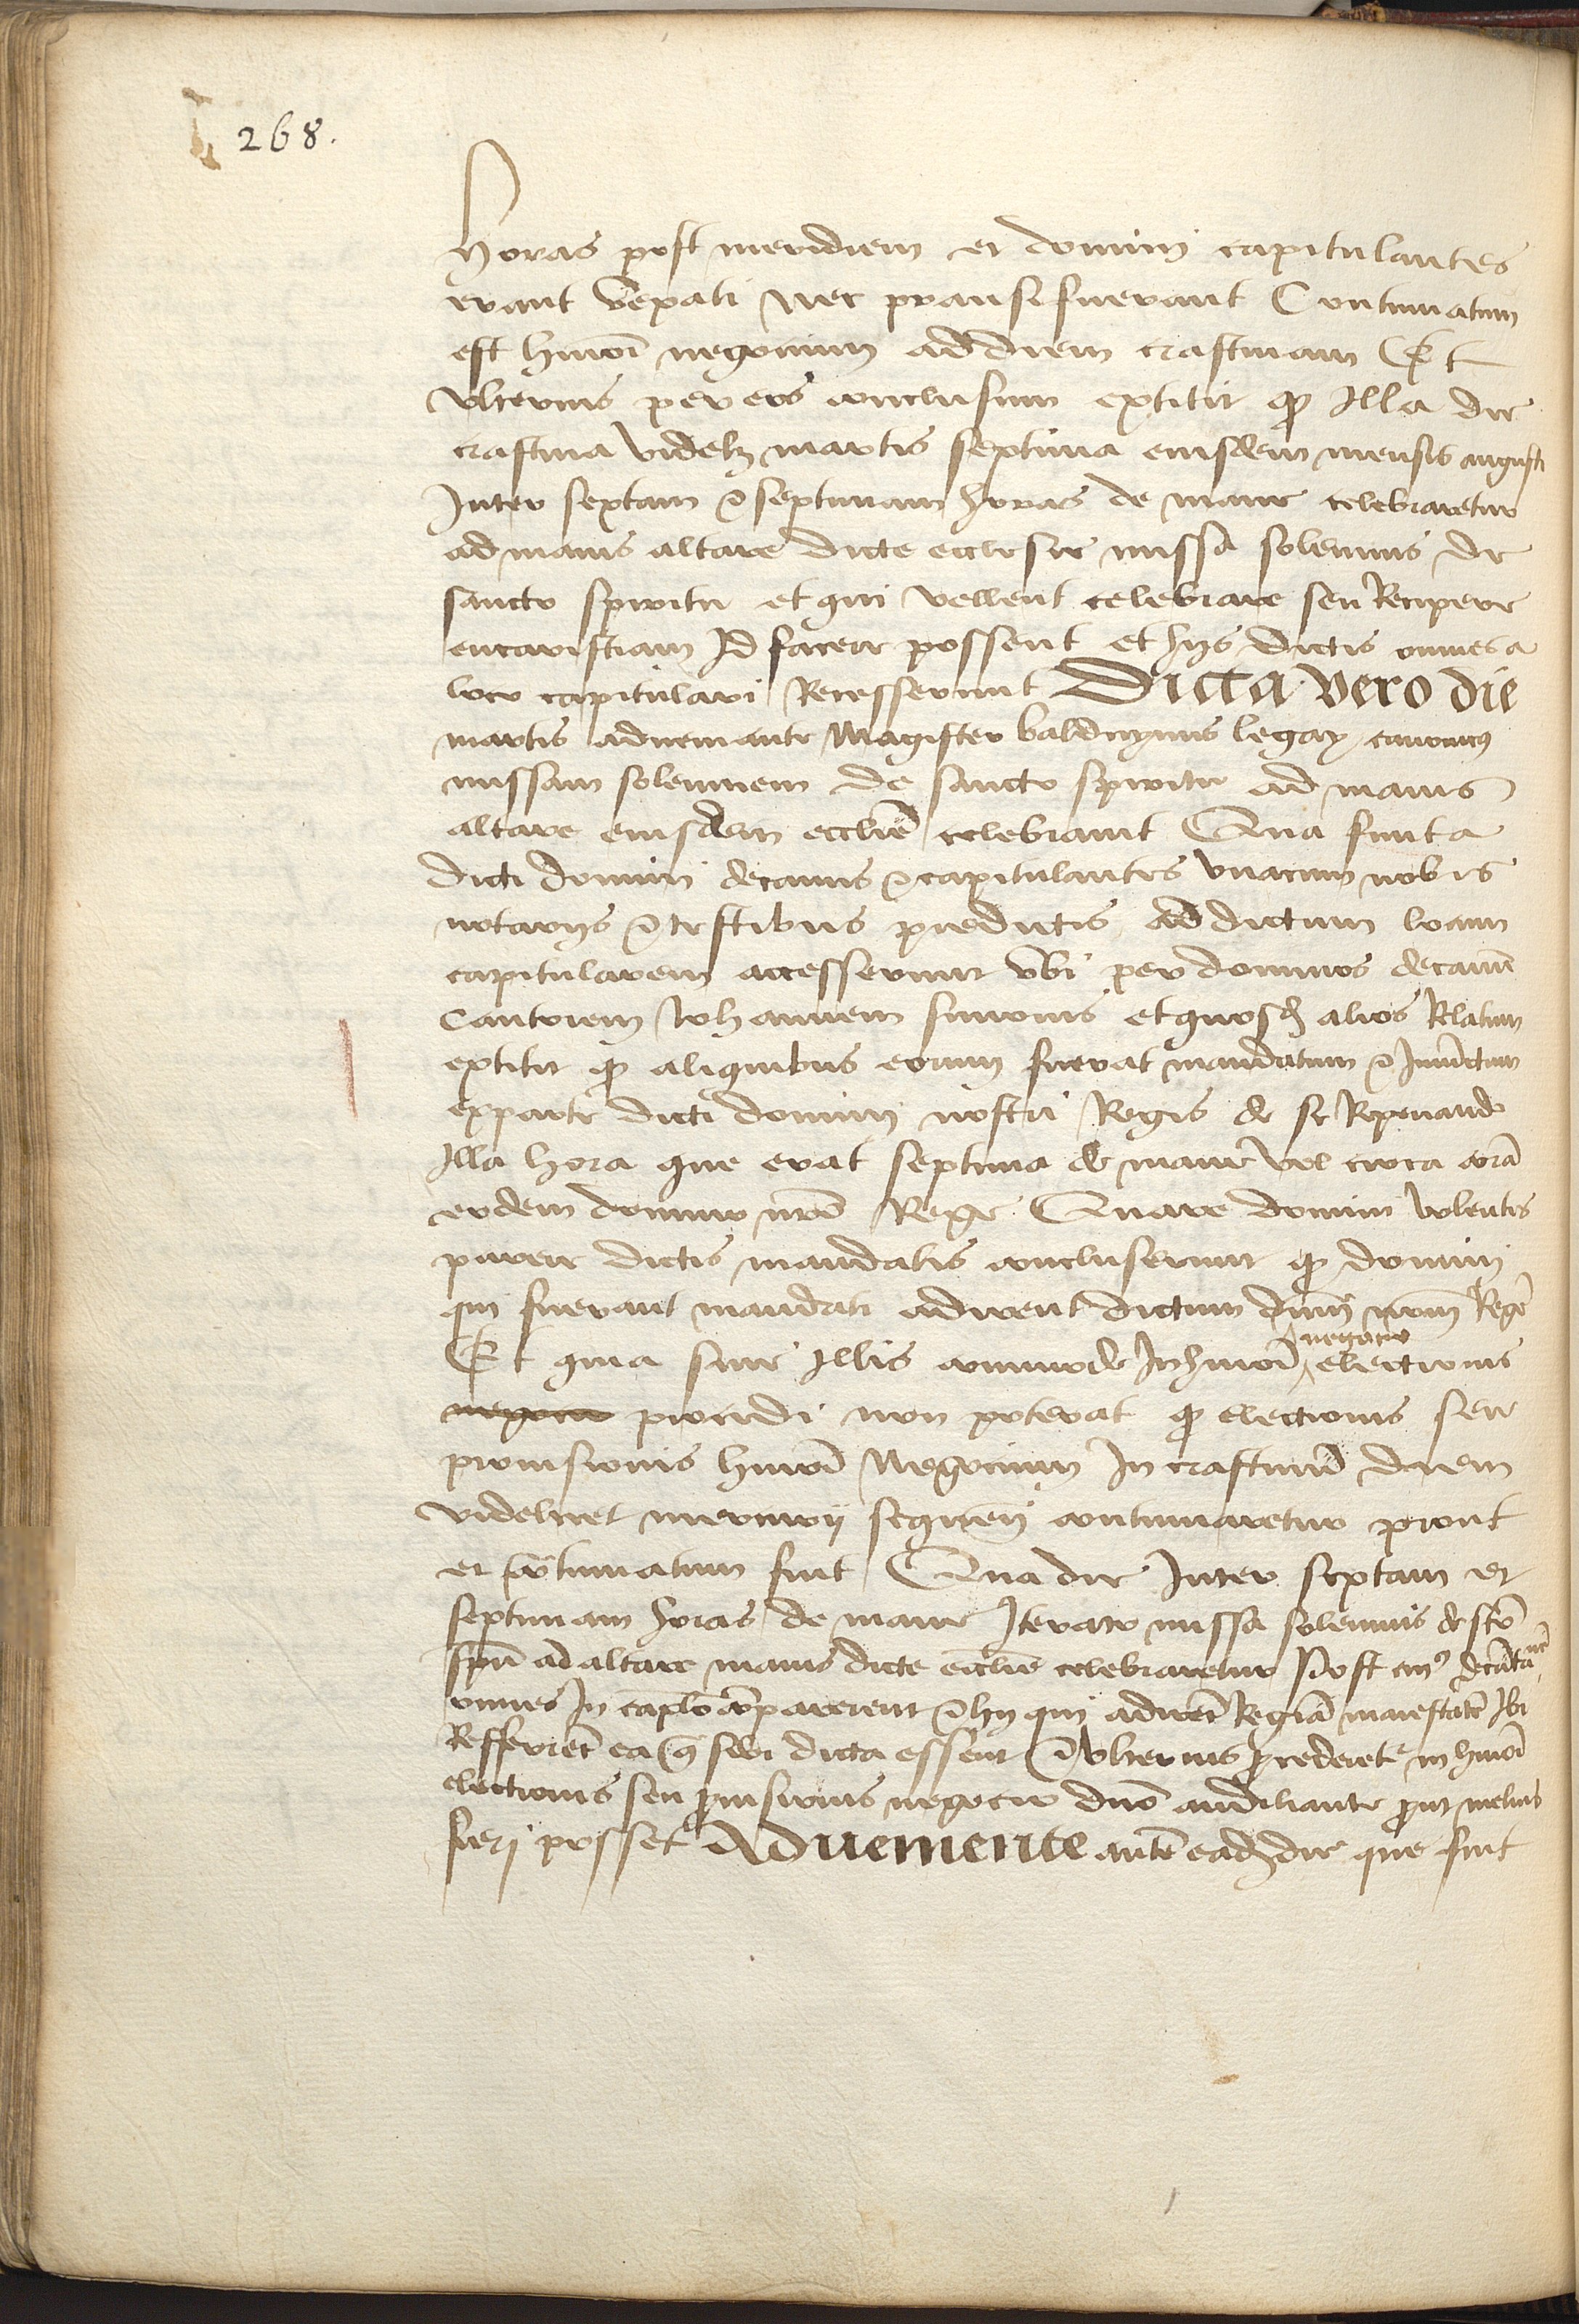 268.
horas post meridiem et domini capitulantes
erant vexati nec pransi fuerant Continuatum
est hmōi negocium ad diem crastinam Et
vlterius per eos conclusum extitit qꝫ illa die
crastina videlꝫ martis septima eiusdem mensis augusti
Inter sextam & septimam horas de mane celebraretur
ad maius altare dicte ecclesie missa solennis de
sancto spiritu et qui vellent celebrare seu Recipere
eucaristiam Id facere possent et hijs dictis omnes a
loco capitulari Recesserunt Dicta vero die
martis adueniente Magister balduynus legay canonicꝰ
missam solennem de sancto spiritu ad maius
altare eiusdem ecclīe celebrauit Qua finita
dicti domini decanus & capitulantes vnacum nobis
notarijs & testibus predictis ad dictum locum
capitularem accesserunt vbi per dominos decanū
Cantorem Iohannem simonis et quosdꝫ alios Relatum
extitit qꝫ aliquibus eorum fuerat mandatum & Iniūctum
ex parte dicti domini nostri Regis de se Representando
illa hora que erat septima de mane vel circa corā
eodem domino nrō Rege Quare domini volentes
parere dictis mandatis concluserunt qꝫ domini
qui fuerant mandati adirent dictum dnm̄ nrm̄ Regē
Et quia sine illis commode In hmōi negocio electionis
negocio procedi non poterat qꝫ electionis seu
prouisionis hmōi Negocium In crastinū diem
videlicet mercurij sequen̄ continuaretur prout
et cōtinuatum fuit Qua die Inter sextam et
septimam horas de mane Iterato missa solennis de scō
spū ad altare maius dicte ecclīe celebraretur Post cuiꝰ decātaciōē
omnes In caplō cōparerent & hij qui adirēt Regiā maiestatē Ibi
Refferrēt ea q̄ sibi dicta essent & vlterius ꝓcederetʳ in hmōi
electionis seu ꝓuisionis negocio dnō auxiliante ꝓut melius
fieri posset Adueniente autē eadꝫ die que fuit